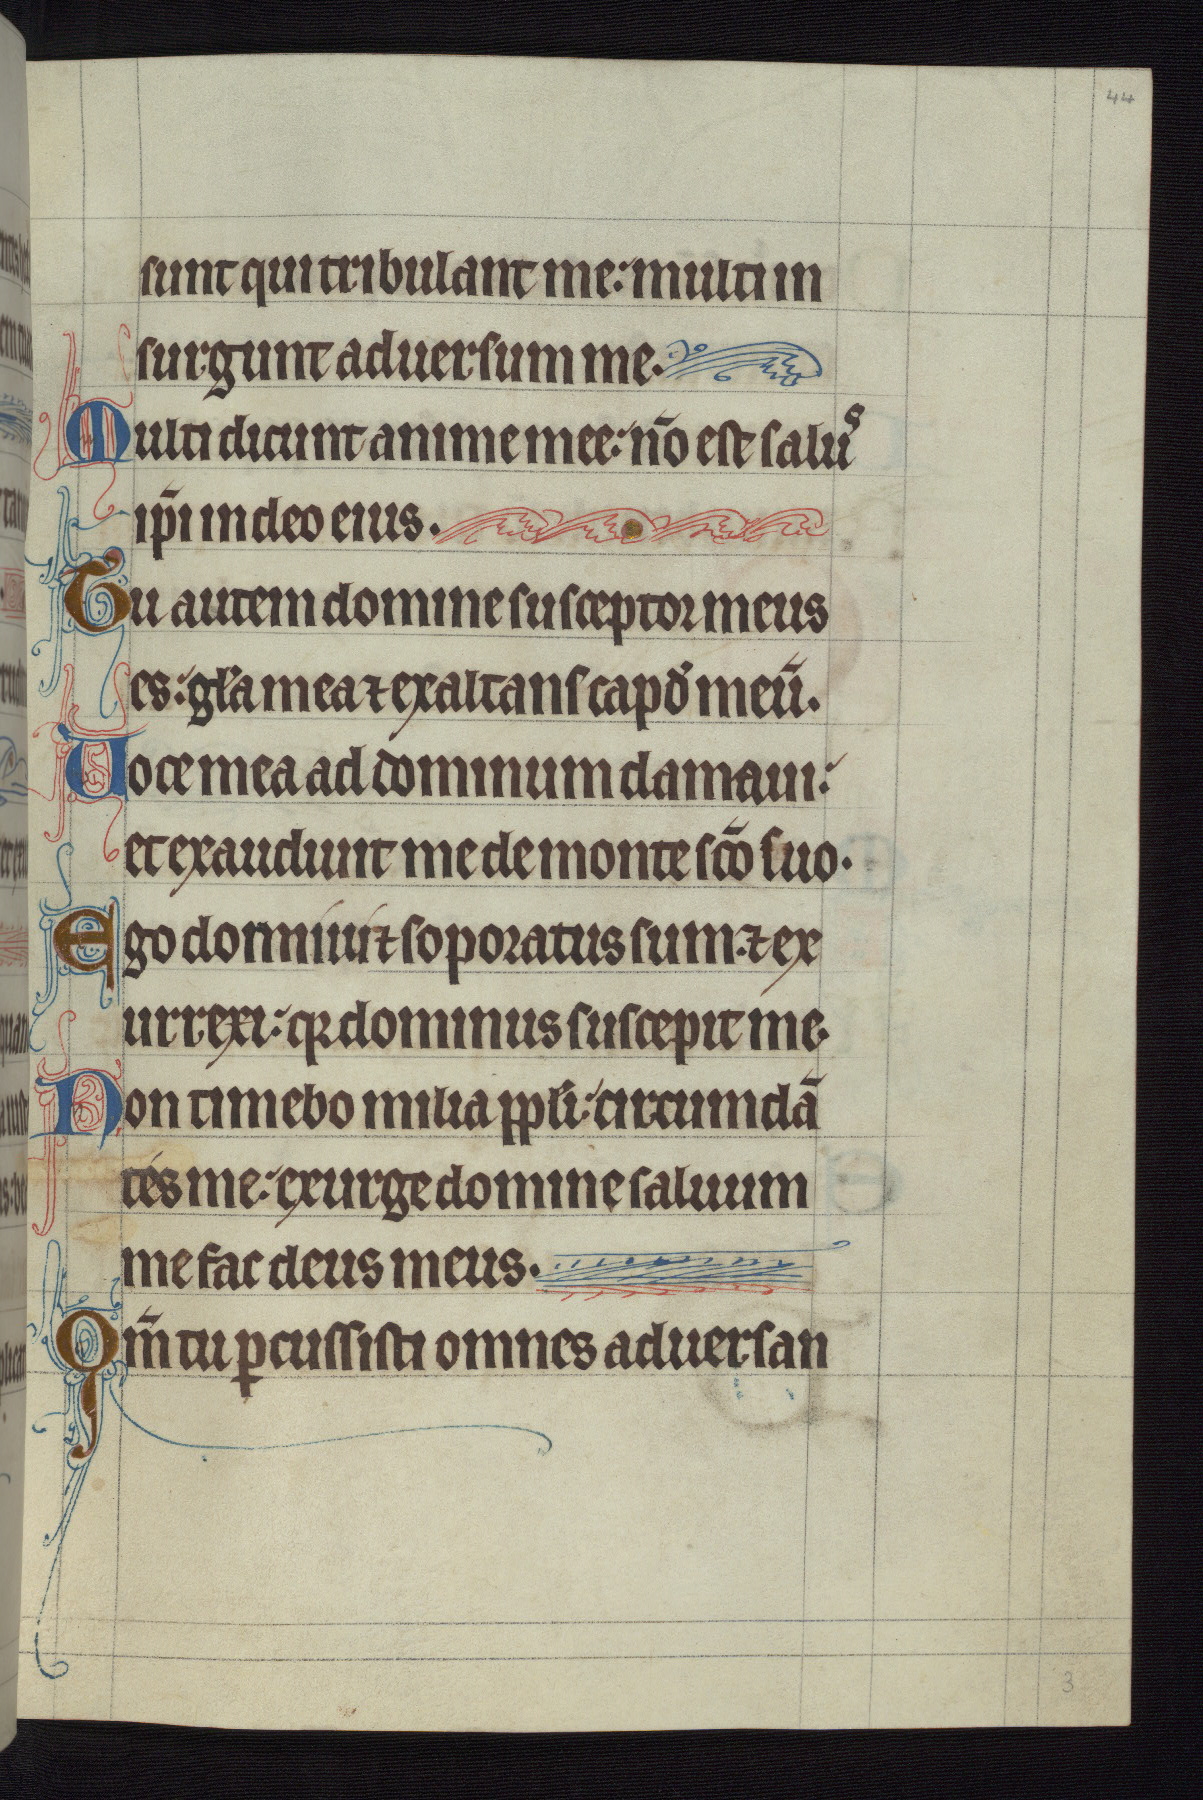 44
sunt qui tribulant me: multi in
surgunt aduersum me.
Multi dicunt anime mee: nō est salus
ip̄i in deo eius.
Tu autem domine susceptor meus
es: gl̄a mea ⁊ exaltans capđ meū.
Uoce mea ad dominum clamaui:
et exaudiuit me de monte sc̄o suo.
Ego dormiui ⁊ soporatus sum: ⁊ ex
urrexi: qꝛ dominus suscepit me.
Non timebo milia ppl̄i: circumdā
tes me: exurge domine saluum
me fac deus meus.
Qm̄ tu ꝑcussisti omnes aduersan
3